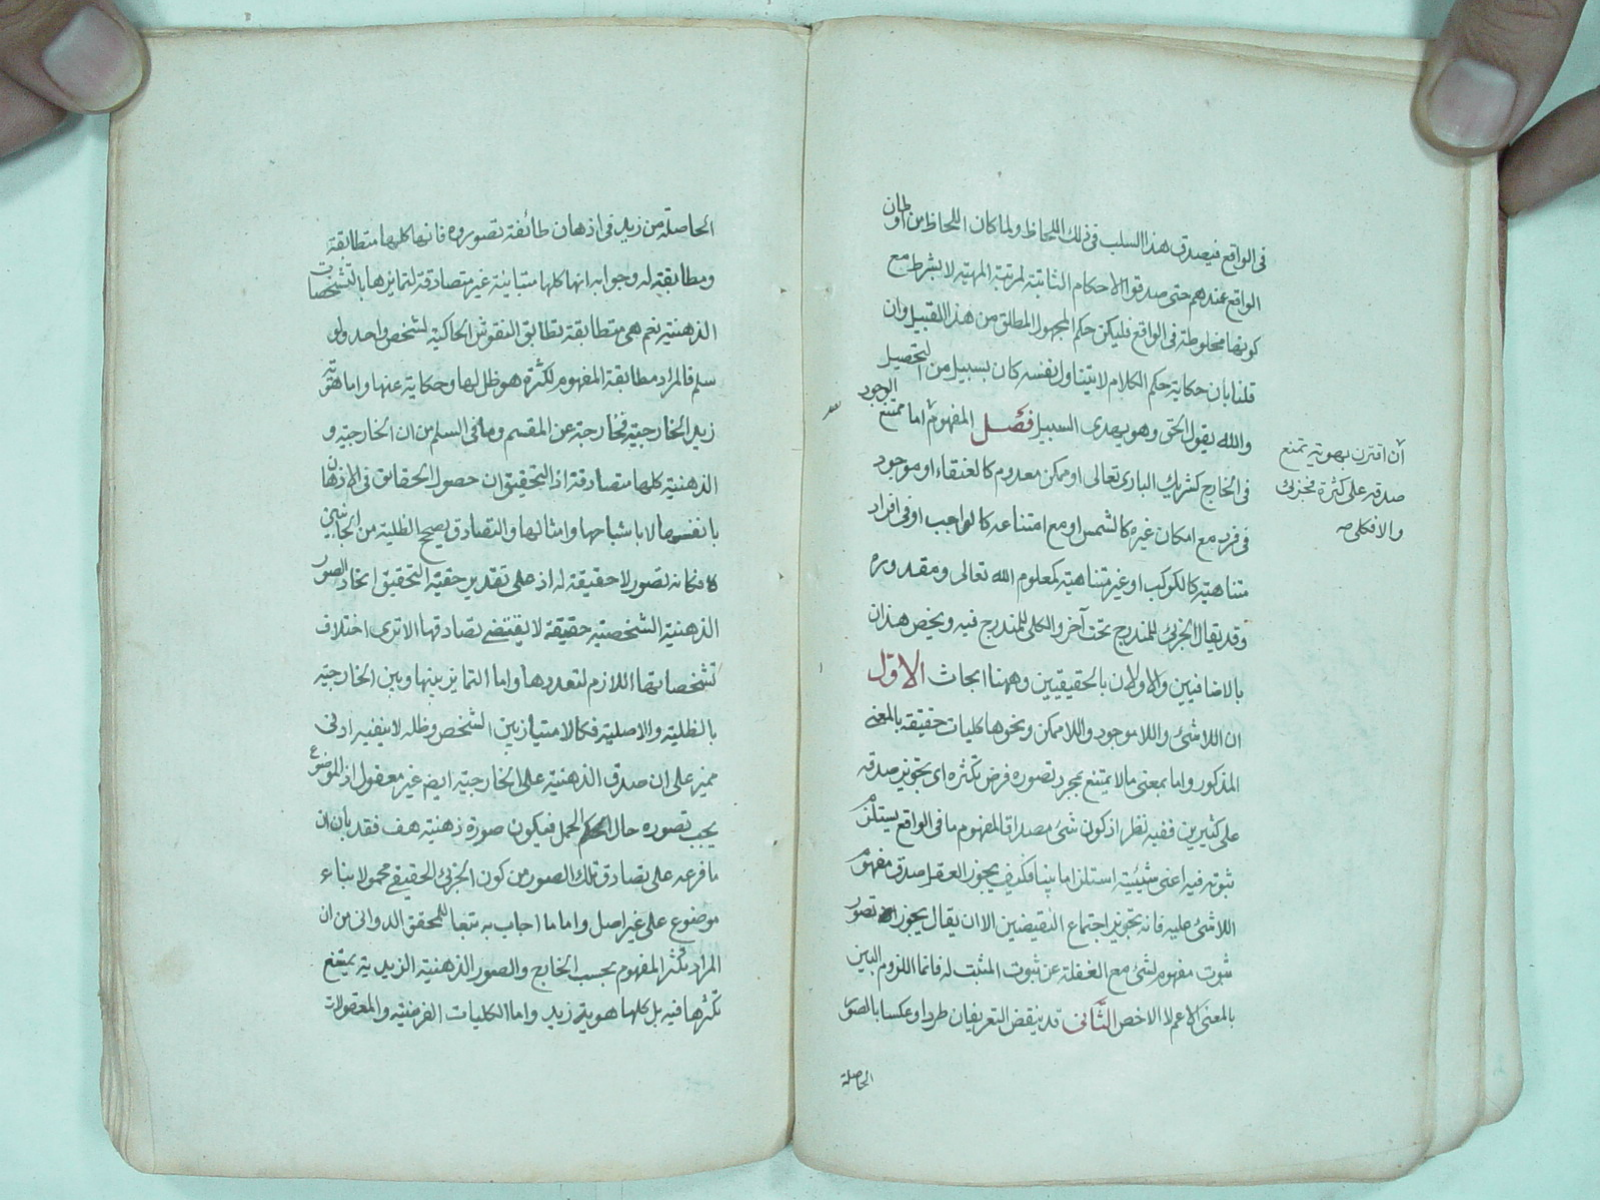 فى الواقع فيصدق هذا السلب فى ذلك اللحاظ ولما كان اللحاظ من اوطان
الواقع عندهم حتى صدقوا الاحكام الثابتة لمرتبة المهية لا بشرط مع
كونها مخلوطة فى الواقع فليكن حكم المجهول المطلق من هذا القبيل وان
قلنا بان حكاية حكم الكلام لا يتناول نفسه كان بسبيل من التحصيل
والله يقول الحق وهو يهدى السبيل فصل المفهوم اما ممتنع الوجود
فى الخارج كشريك البارى تعالى او ممكن معدوم كالعنقاء او موجود
فى فرد مع امكان غيره كالشمس او مع امتناعه كالواجب او فى افراد
متناهية كالكوكب او غير متناهية كمعلوم الله تعالى ومقدوره
وقد يقال الجزئى للمندرج تحت آخر والكلى للمندرج فيه ويخص هذان
بالاضافيين والاولان بالحقيقيين وههنا ابحاث الاول
ان اللاشئ واللاموجود واللاممكن ونحوها كليات حقيقة بالمعنى
المذكور واما بمعنى ما لا يمتنع بمجرد تصوره فرض تكثره اى تجويز صدقه
على كثيرين ففيه نظر اذ كون شئ مصداقا لمفهوم ما فى الواقع يستلزم
ثبوته فيه اعنى شيئيته استلزاما بينا فكيف يجوز العقل صدق مفهوم
اللاشئ عليه فانه تجويز اجتماع النقيضين الا ان يقال يجوز تصور
ثبوت مفهوم لشئ مع الغفلة عن ثبوت المثبت له فانما اللزوم البين
بالمعنى الاعم لا الاخص الثانى قد ينقض التعريفان طردا وعكسا بالصور
الحاصلة
ان اقترن بهوية يمتنع
صدقه على كثرة فجزئى
والا فكلى صه
الحاصلة من زيد فى اذهان طائفة تصوروه فانها كلها متطابقة
ومطابقة له وجوابه انها كلها متباينة غير متصادقة لتمايزها بالتشخصات
الذهنية نعم هى متطابقة تطابق النقوش الحاكية لشخص واحد ولو
سلم فالمراد مطابقة المفهوم لكثرة هو ظل لها وحكاية عنها واما هوية
زيد الخارجية فخارجة عن المقسم وما فى السلم من ان الخارجية و
الذهنية كلها متصادقة اذ التحقيق ان حصول الحقائق فى الاذهان
بانفسها لا باشباحها وامثالها والتصادق يصحح الظلية من الجانبين
فكانه تصور لا حقيقة له اذ على تقدير حقية التحقيق اتحاد الصور
الذهنية الشخصية حقيقة لا يقتضى تصادقها الا ترى اختلاف
تشخصاتها اللازم لتعددها واما التمايز بينها وبين الخارجية
بالظلية والاصلية فكالامتياز بين الشخص وظله لا ينفيه ادنى
مميز على ان صدق الذهنية على الخارجية ايضم غير معقول اذ الموضوع
يجب تصوره حال الحكم الحمل فيكون صورة ذهنية هف فقد بان ان
ما فرعه على تصادق تلك الصور من كون الجزئى الحقيقى محمولا بناء
موضوع على غير اصل واما ما اجاب به تبعا للمحقق الدوانى من ان
المراد تكثر المفهوم بحسب الخارج والصور الذهنية الزيدية يمتنع
تكثرها فيه بل كلها هوية زيد واما الكليات الفرضية والمعقولات